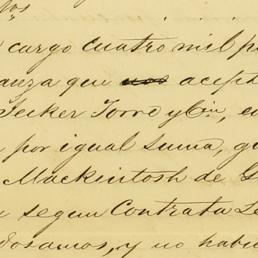 cargo cuatro mil p
anza que nos acepta
Jecker Torre y Cia, e
por igual suma, g
Mackintosh de G
segun Contrata
dosamos, y no habie